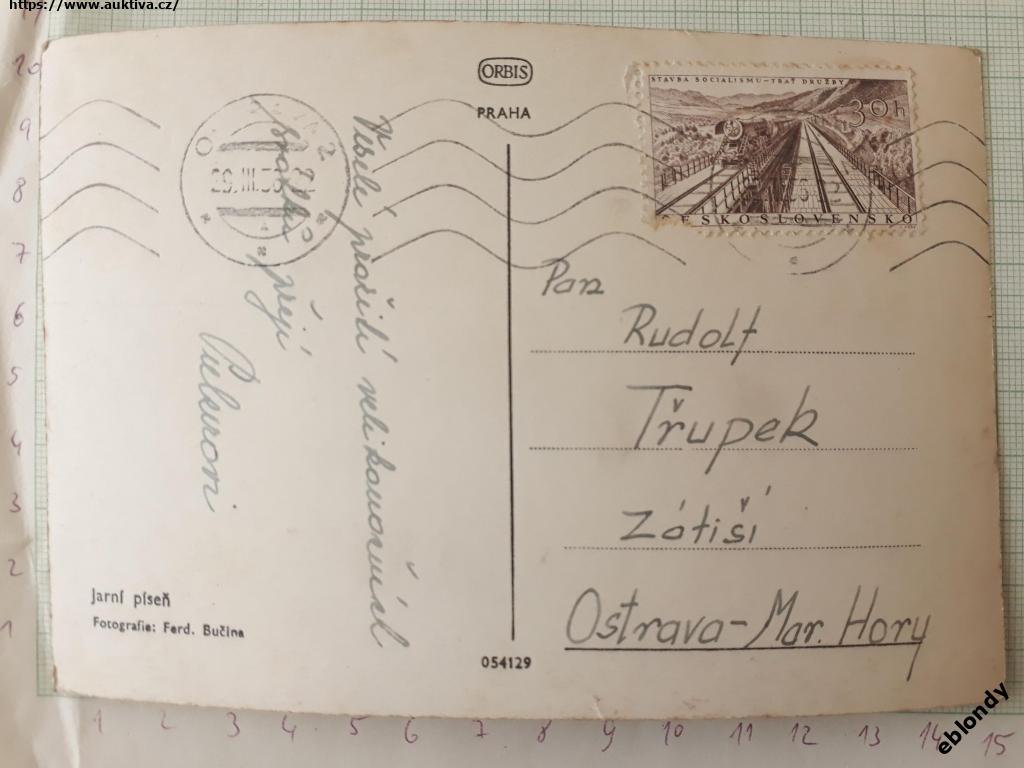 https://www.auktiva.cz/
ORBIS
PRAHA
STAVBA SOCIALISMU-TRAŤ DRUŽBY
30h
ČESKOSLOVENSKO
29.III.56
Veselé prožití velikonočních
svátků přejí
Pan
Rudolf
Třupek
Zátiší
Ostrava-Mar. Hory
Jarní píseň
Fotografie: Ferd. Bučina
054129
10
9
8
7
6
5
4
3
2
1
1 2 3 4 5 6 7 8 9 10 11 12 13 14 15
eblondy